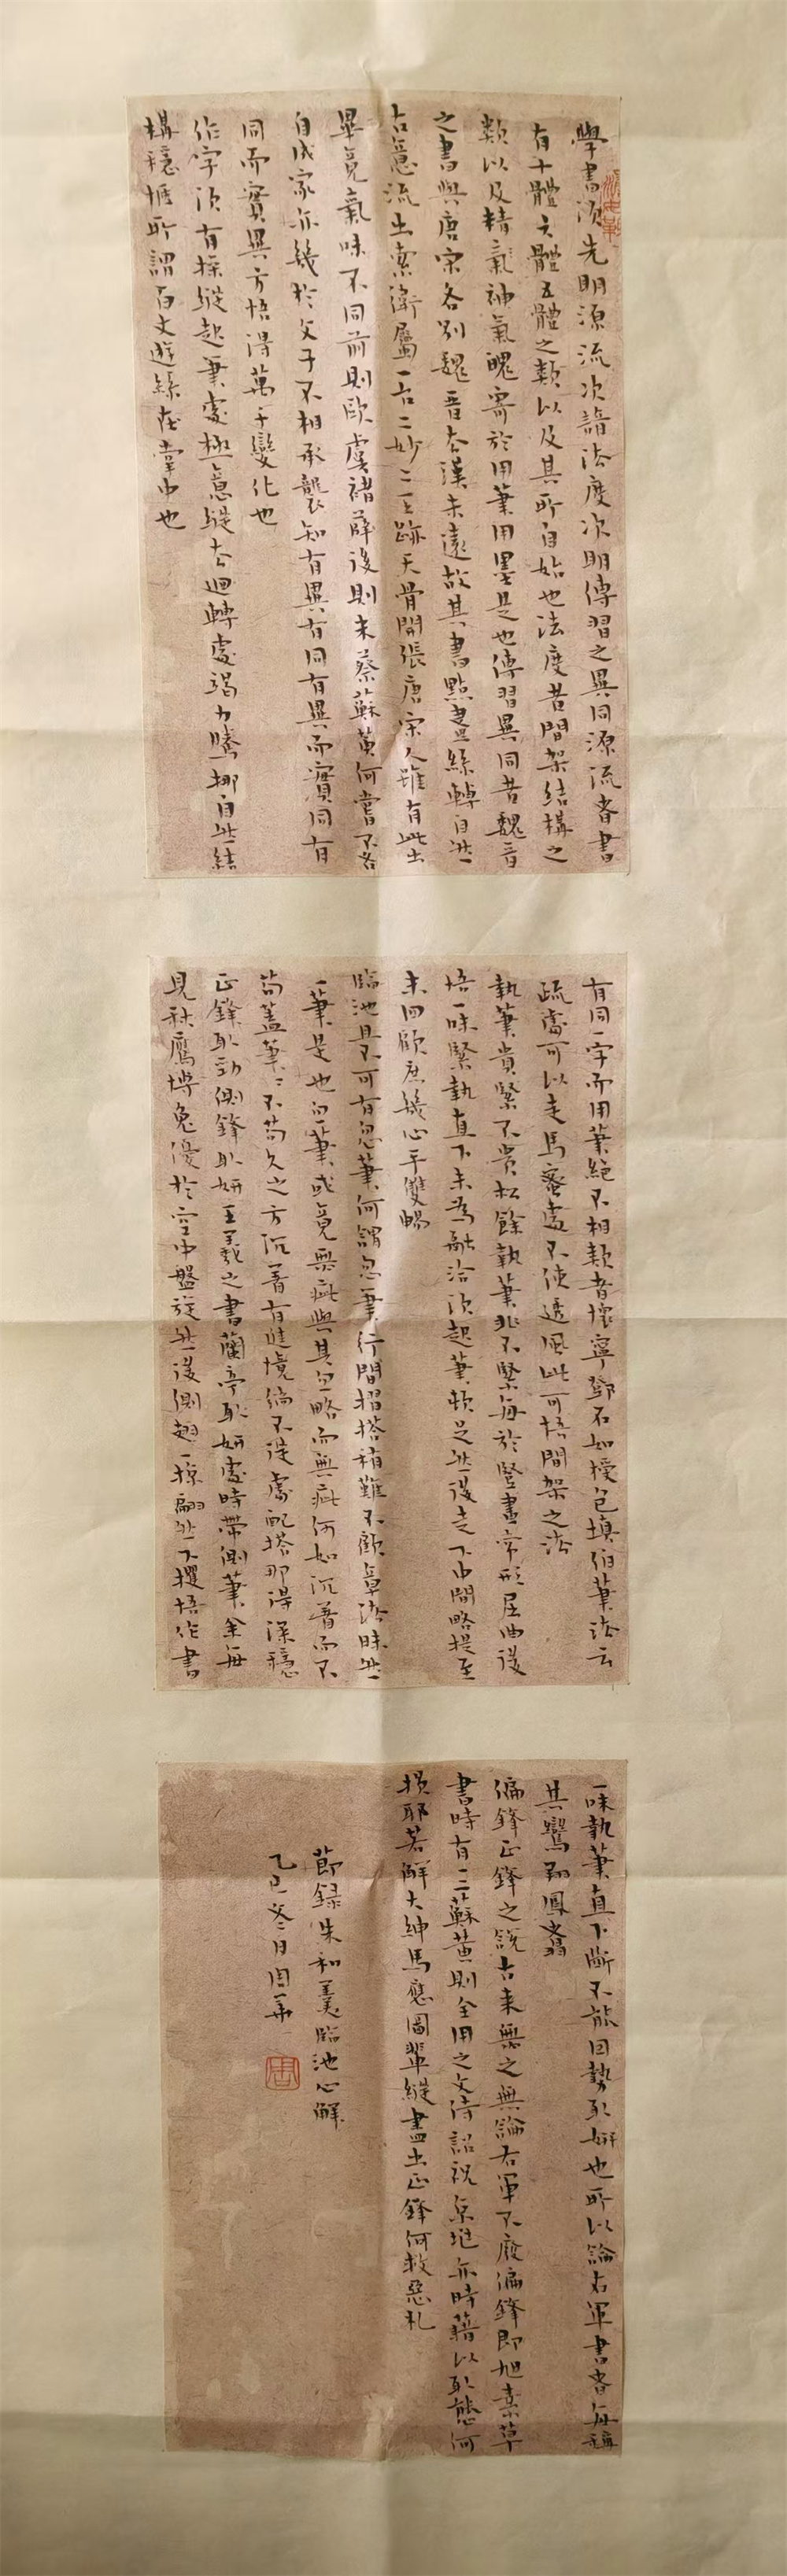 學書須先明源流次諳法度次明傳習之異同源流者書
有十體六體五體之類以及其所自始也法度者間架結構之
類以及精氣神氣魄寄於用筆用墨是也傳習異同者魏晉
之書與唐宋各別魏晉去漢未遠故其書點畫絲轉自然
古意流出索衛屬一台二妙二王跡天骨開張唐宋人雖有此
畢竟氣味不同前則歐虞褚薛後則米蔡蘇黃何嘗不各
自成家亦幾於父子不相承襲知有異有同有異而實同有
同而實異方悟得萬千變化也
作字須有操縱起筆處極意縱去迴轉處竭力騰挪自然結
構穩愜所謂百丈遊絲在掌中也
有同一字而用筆絕不相類者懷寧鄧石如授包慎伯筆法云
疏處可以走馬密處不使透風此可悟間架之法
執筆貴緊不貴松餘執筆非不緊每於豎畫常形屈曲後
悟一味緊執直下未為融洽須起筆頓足然後走下中間略提至
末回顧庶幾心手雙暢
臨池最不可有忽筆何謂忽筆行間摺搭稍難不顧章法昧然
一筆是也忽筆或竟無疵與其忽略而無疵何如沉著而不
苟蓋筆筆不苟久之方沉著有進境倘不從處配搭那得深穩
正鋒取勁側鋒取妍王羲之書蘭亭取妍處時帶側筆余每
見秋鷹搏兔優於空中盤旋然後側翅一掠翩然下攫悟作書
一味執筆直下斷不能因勢取妍也所以論右軍書者每稱
其鸞翔鳳翥
偏鋒正鋒之說古來無之無論右軍不廢偏鋒即旭素草
書時有一二蘇黃則全用之文待詔祝京兆亦時藉以取態何
損耶若解大紳馬應圖輩縱盡出正鋒何救惡札
節錄朱和羹臨池心解
乙巳冬日周華